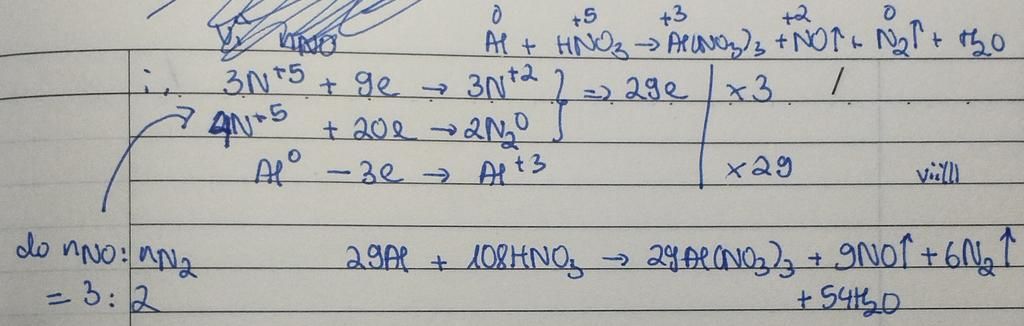 nNO
0 +5 +3 +2 0
Al + HNO₃ → Al(NO₃)₃ + NO↑ + N₂↑ + H₂O
3N⁺⁵ + 9e → 3N⁺² } => 29e | ×3
4N⁺⁵ + 20e → 2N₂⁰
Al⁰ − 3e → Al⁺³ | ×29
do nNO: nN₂
= 3:2
29Al + 108HNO₃ → 29Al(NO₃)₃ + 9NO↑ + 6N₂↑
+ 54H₂O